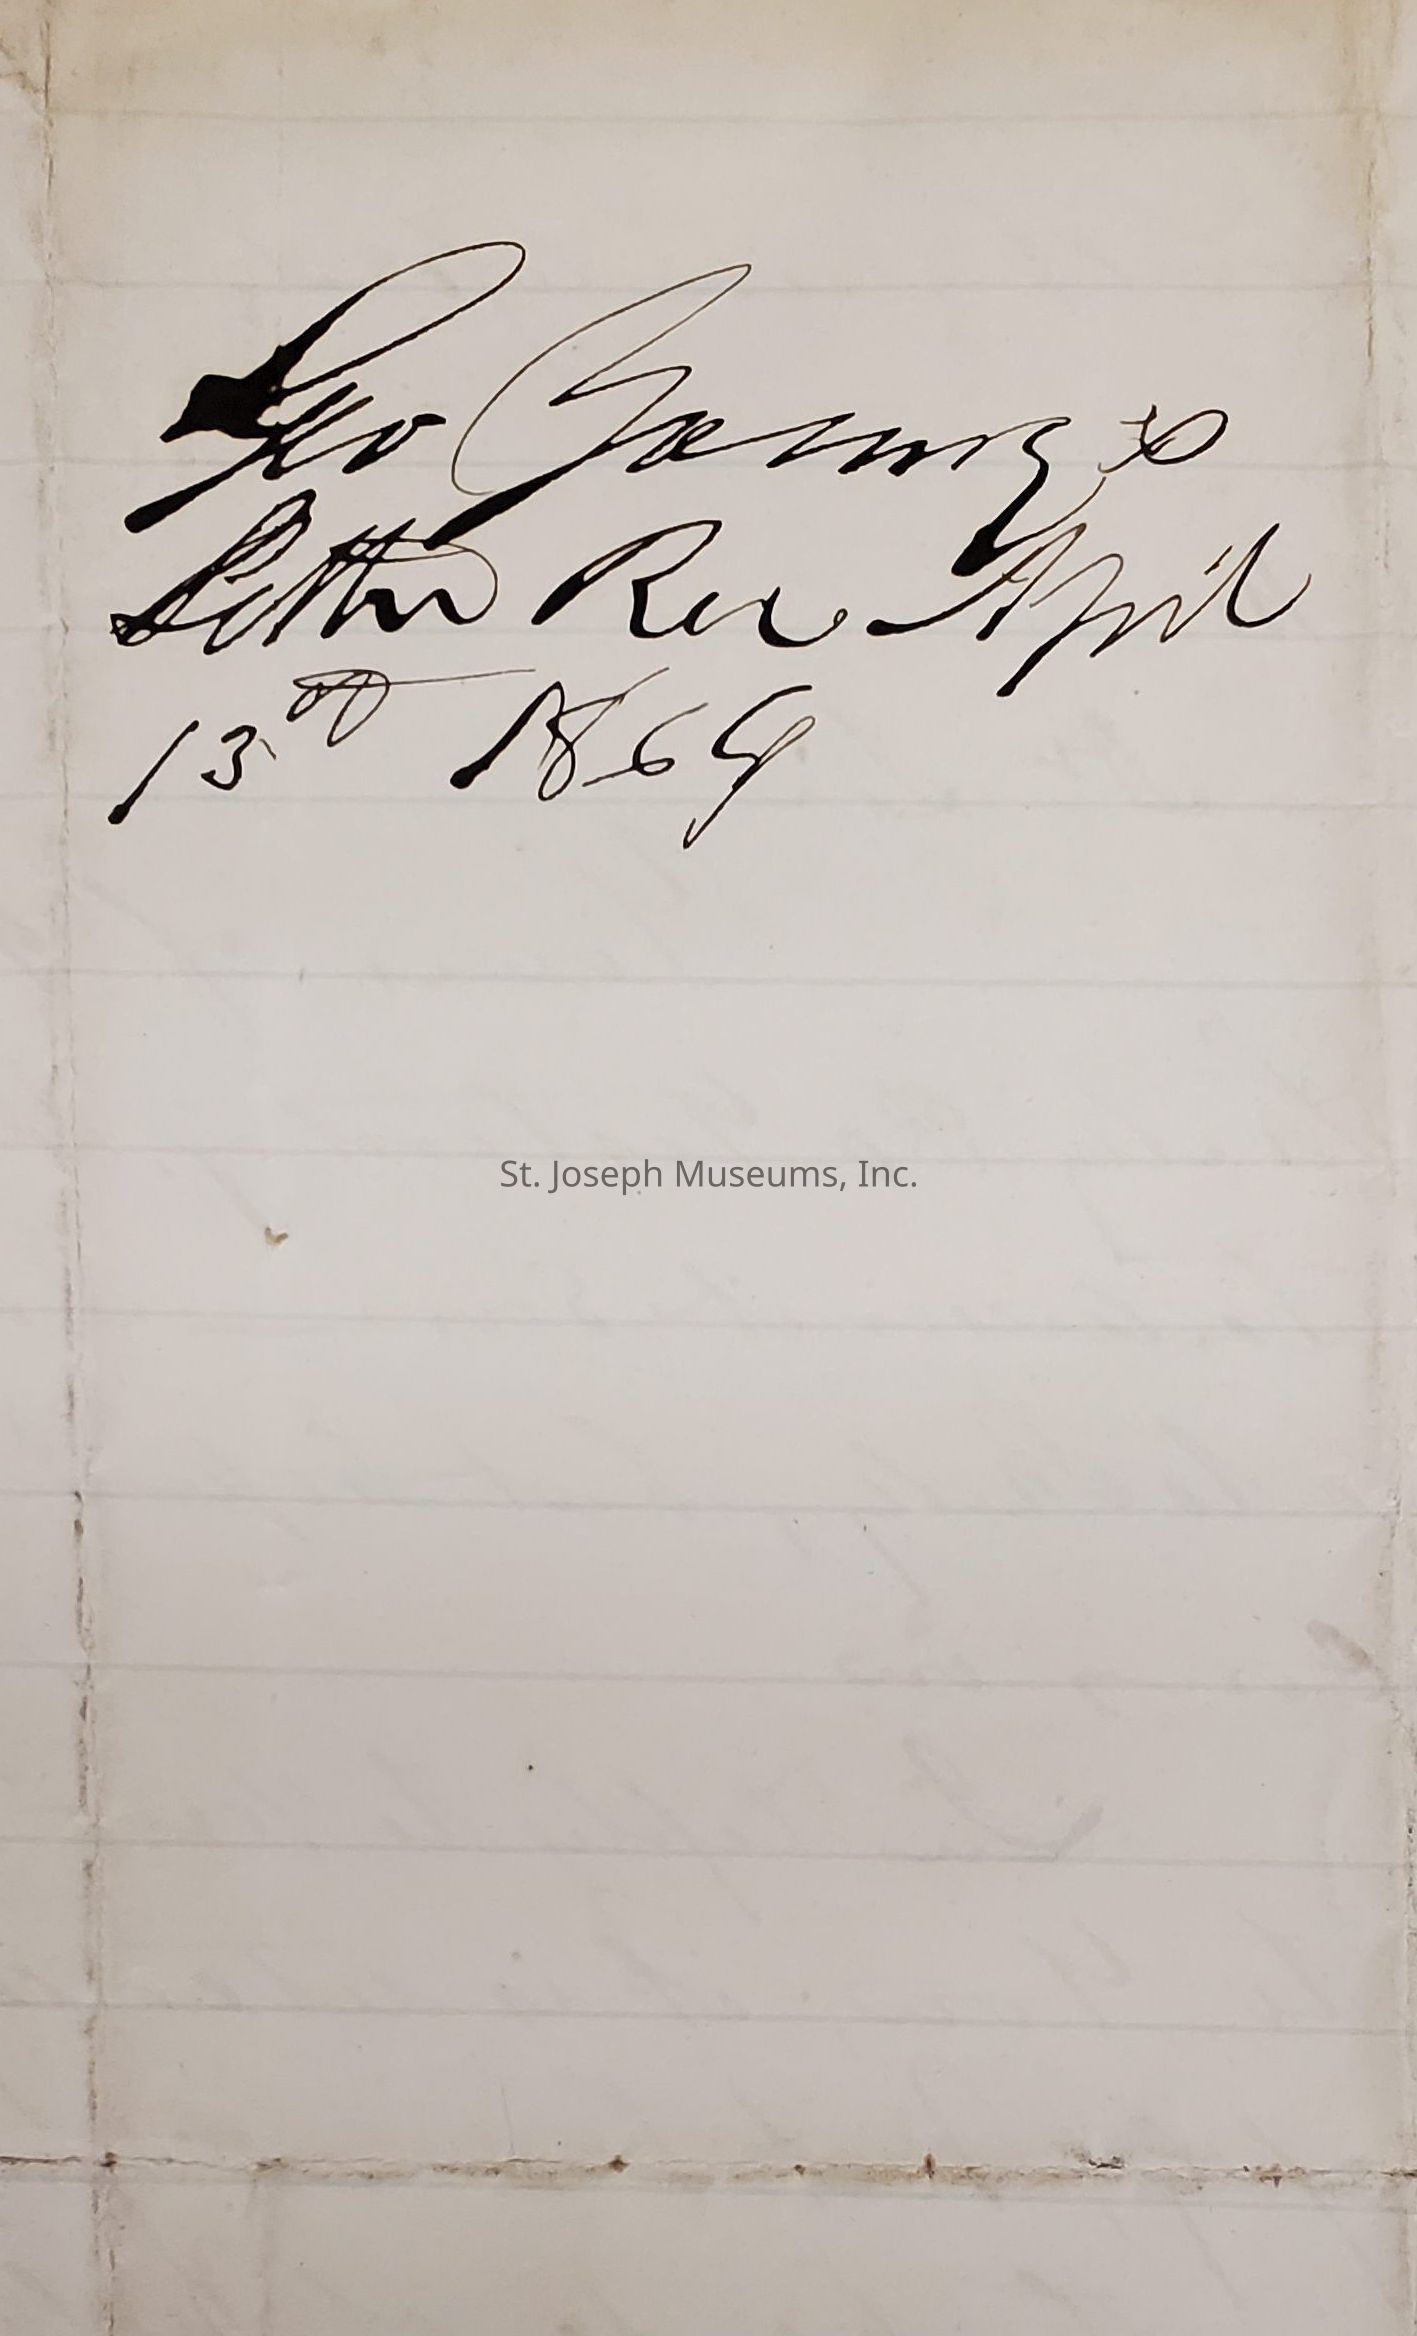 Geo Young's
Letter Rec April
13th 1869
St. Joseph Museums, Inc.